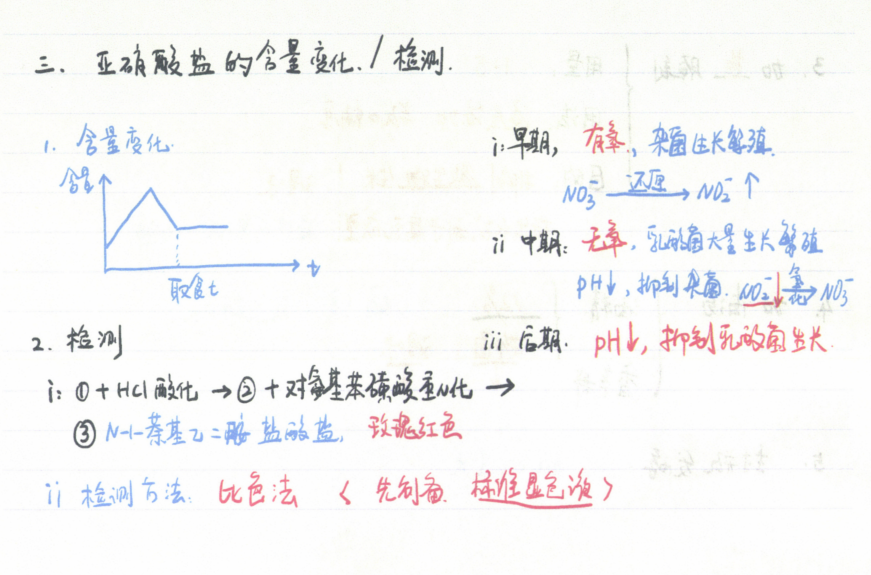 三、亚硝酸盐的含量变化/检测.
1. 含量变化.
含量
t
取食t
i:早期, 有氧, 杂菌生长繁殖.
NO₃⁻ 还原→ NO₂⁻ ↑
ii 中期: 无氧, 乳酸菌大量生长繁殖
pH↓, 抑制杂菌. NO₂⁻↓ 氧化→ NO₃⁻
iii 后期. pH↓, 抑制乳酸菌生长.
2. 检测
i: ①+HCl酸化 →②+对氨基苯磺酸重N化 →
③ N-1-萘基乙二胺盐酸盐, 玫瑰红色
ii 检测方法: 比色法 < 先制备. 标准显色液>